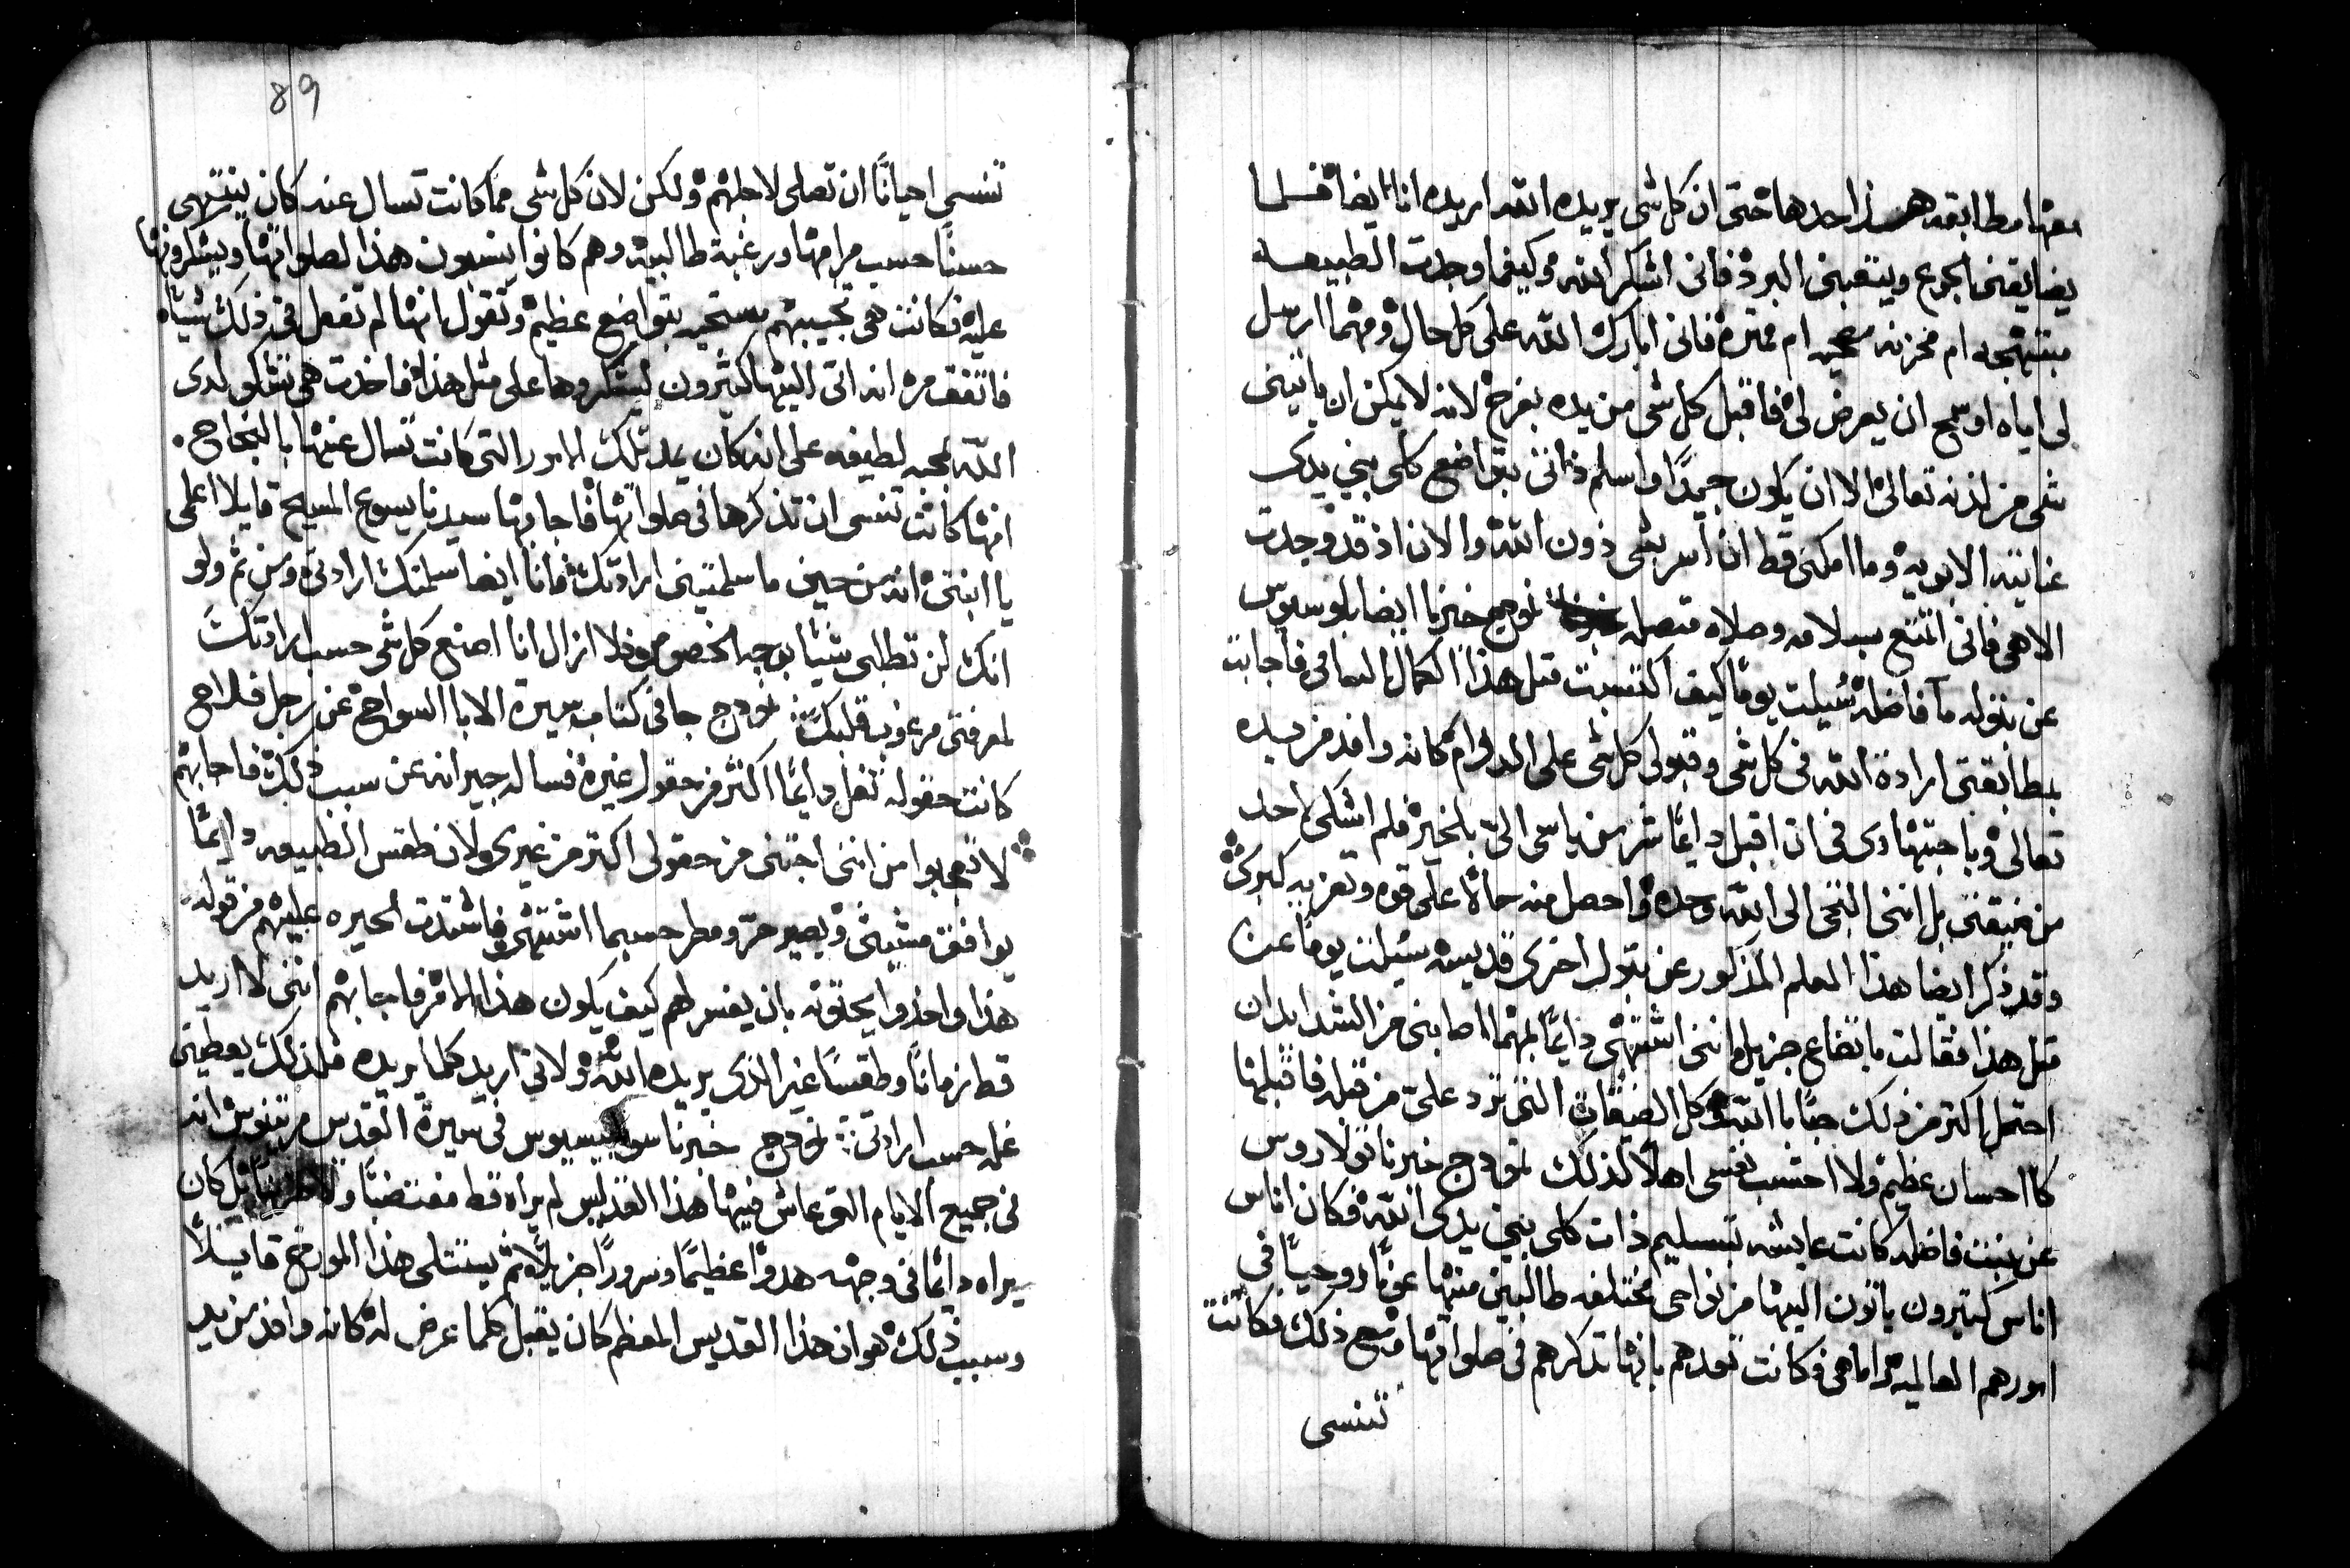 معها مطابقه هذا حدها حتى ان كل شي يريده الله اريده انا ايضا فلما
يضايقني الجوع ويتعبني البرد فاني اشكر الله وكيفما وجدت الطبيعه
مبتهجه ام محزنه ام ممتره فاني ابارك الله على كل حال ومهما ارسل
لي اياه او سمح ان يعرض لي فاقبل كل شي من يده بفرح لانه لا يمكن ان ياتيني
شي من لدنه تعالى الا ان يكون جيدًا واسلم ذاتي بتواضع كلي بين يدي
عنايته الابويه وما امكني قط ان اسر بشي دون الله والان اذ قد وجدت
الاهي فاني اتمتع بسلامه وصلاه متصله نموذج خبرنا ايضا بلوسيوس
عن بتوله ما فاضله سُيلت يومًا كيف اكتسبت مثل هذا الكمال السامي فاجابت
بمطابقتي ارادة الله في كل شي وقبولي كل شي على الدوام كانه وافد من يده
تعالى وباجتهادي في ان اقبل دايمًا شر من ياسي اليّ بالخير فلم اشكي لاحد
من ضيقتي بل انني التجي الى الله وحده واحصل منه حالاً على قوه وتعزيه كبرى
وقد ذكر ايضا هذا المعلم المذكور عن بتول اخرى قديسه سيلت يومًا عن
مثل هذا فقالت باتضاع جزيل انني اشتهي دايمًا لمهما اصابني من الشدايد ان
احتمل اكتر من ذلك حبًا بالله وكل الضيقات التي ترد عليّ من قبله فاقبلها
كاحسان عظيم ولا احتسب نفسي اهلاً لذلك نموذج خبرنا تولاروس
عن بنت فاضله كانت عايشه بتسليم ذات كلي بين يدي الله فكان اناس
اناس كتيرون ياتون اليها من نواحي مختلفه طالبين منها عونًا روحيًا في
امورهم العالميه اما هي فكانت تعدهم بانها تذكرهم في صلواتها ومع ذلك فكانت
تنسى
89
تنسى احيانًا ان تصلي لاجلهم ولكن لان كل شي مما كانت تسال عنه كان ينتهي
حسنًا حسب مرامها ورغبة طالبيه وهم كانوا ينسبون هذا لصلواتها ويشكرونها
عليه فكانت هي تجيبهم مستحيه بتواضع عظيم وتقول انها لم تفعل في ذلك شياه
فاتفق مره انه اتى اليها كثيرون ليشكروها على مثل هذا فاخذت هي تشكو لدى
الله بمحبه لطيفه على انه كان يمد تلك الامور التي كانت تسال عنها بالنجاح.
انها كانت تنسى ان تذكرها في صلواتها فاجابها سيدنا يسوع المسيح قايلا اعلمي
يا ابنتي انه من حين ما سلمتيني ارادتك فانا ايضا سلمتك ارادتي ومن ثم ولو
انك لن تطلبي شيًا بوجه الخصوص فلا ازال انا اصنع كل شي حسب ارادتك
لمعرفتي مرغوب قلبك نموذج جا في كتاب سيرة الابا السواح عن رجل فلاح
كانت حقوله تغل دايمًا اكثر من حقول غيره فساله جيرانه عن سبب ذلك فاجابهم
لا تعجبوا من انني اجتني من حقولي اكتر من غيري لان طقس الطبيعه دايمًا
يوافق مشيتي ويصير حر ومطر حسبما اشتهي فاشتدت الحيره عليهم من قوله
هذا واخذوا يحلقونه بان يفسر لهم كيف يكون هذا الامر فاجابهم انني لا اريد
قط زمانًا وطقسًا غير الذي يريده الله ولاني اريد كلما يريده فلذلك يعطيني
غله حسب ارادتي نموذج خبرنا سولبيسيوس في سيرة القدس مرتينوس انه
في جميع الايام التي عاش فيها هذا القديس لم يراه قط مغتضبًا بل كان
يراه دايمًا في وجهه هدوًا عظيمًا وسرورًا جزيلاً ثم يستتلى هذا المورخ قايلاً
وسبب ذلك هو ان هذا القديس المعظم كان يقبل كلما عرض له كانه وافد من يد